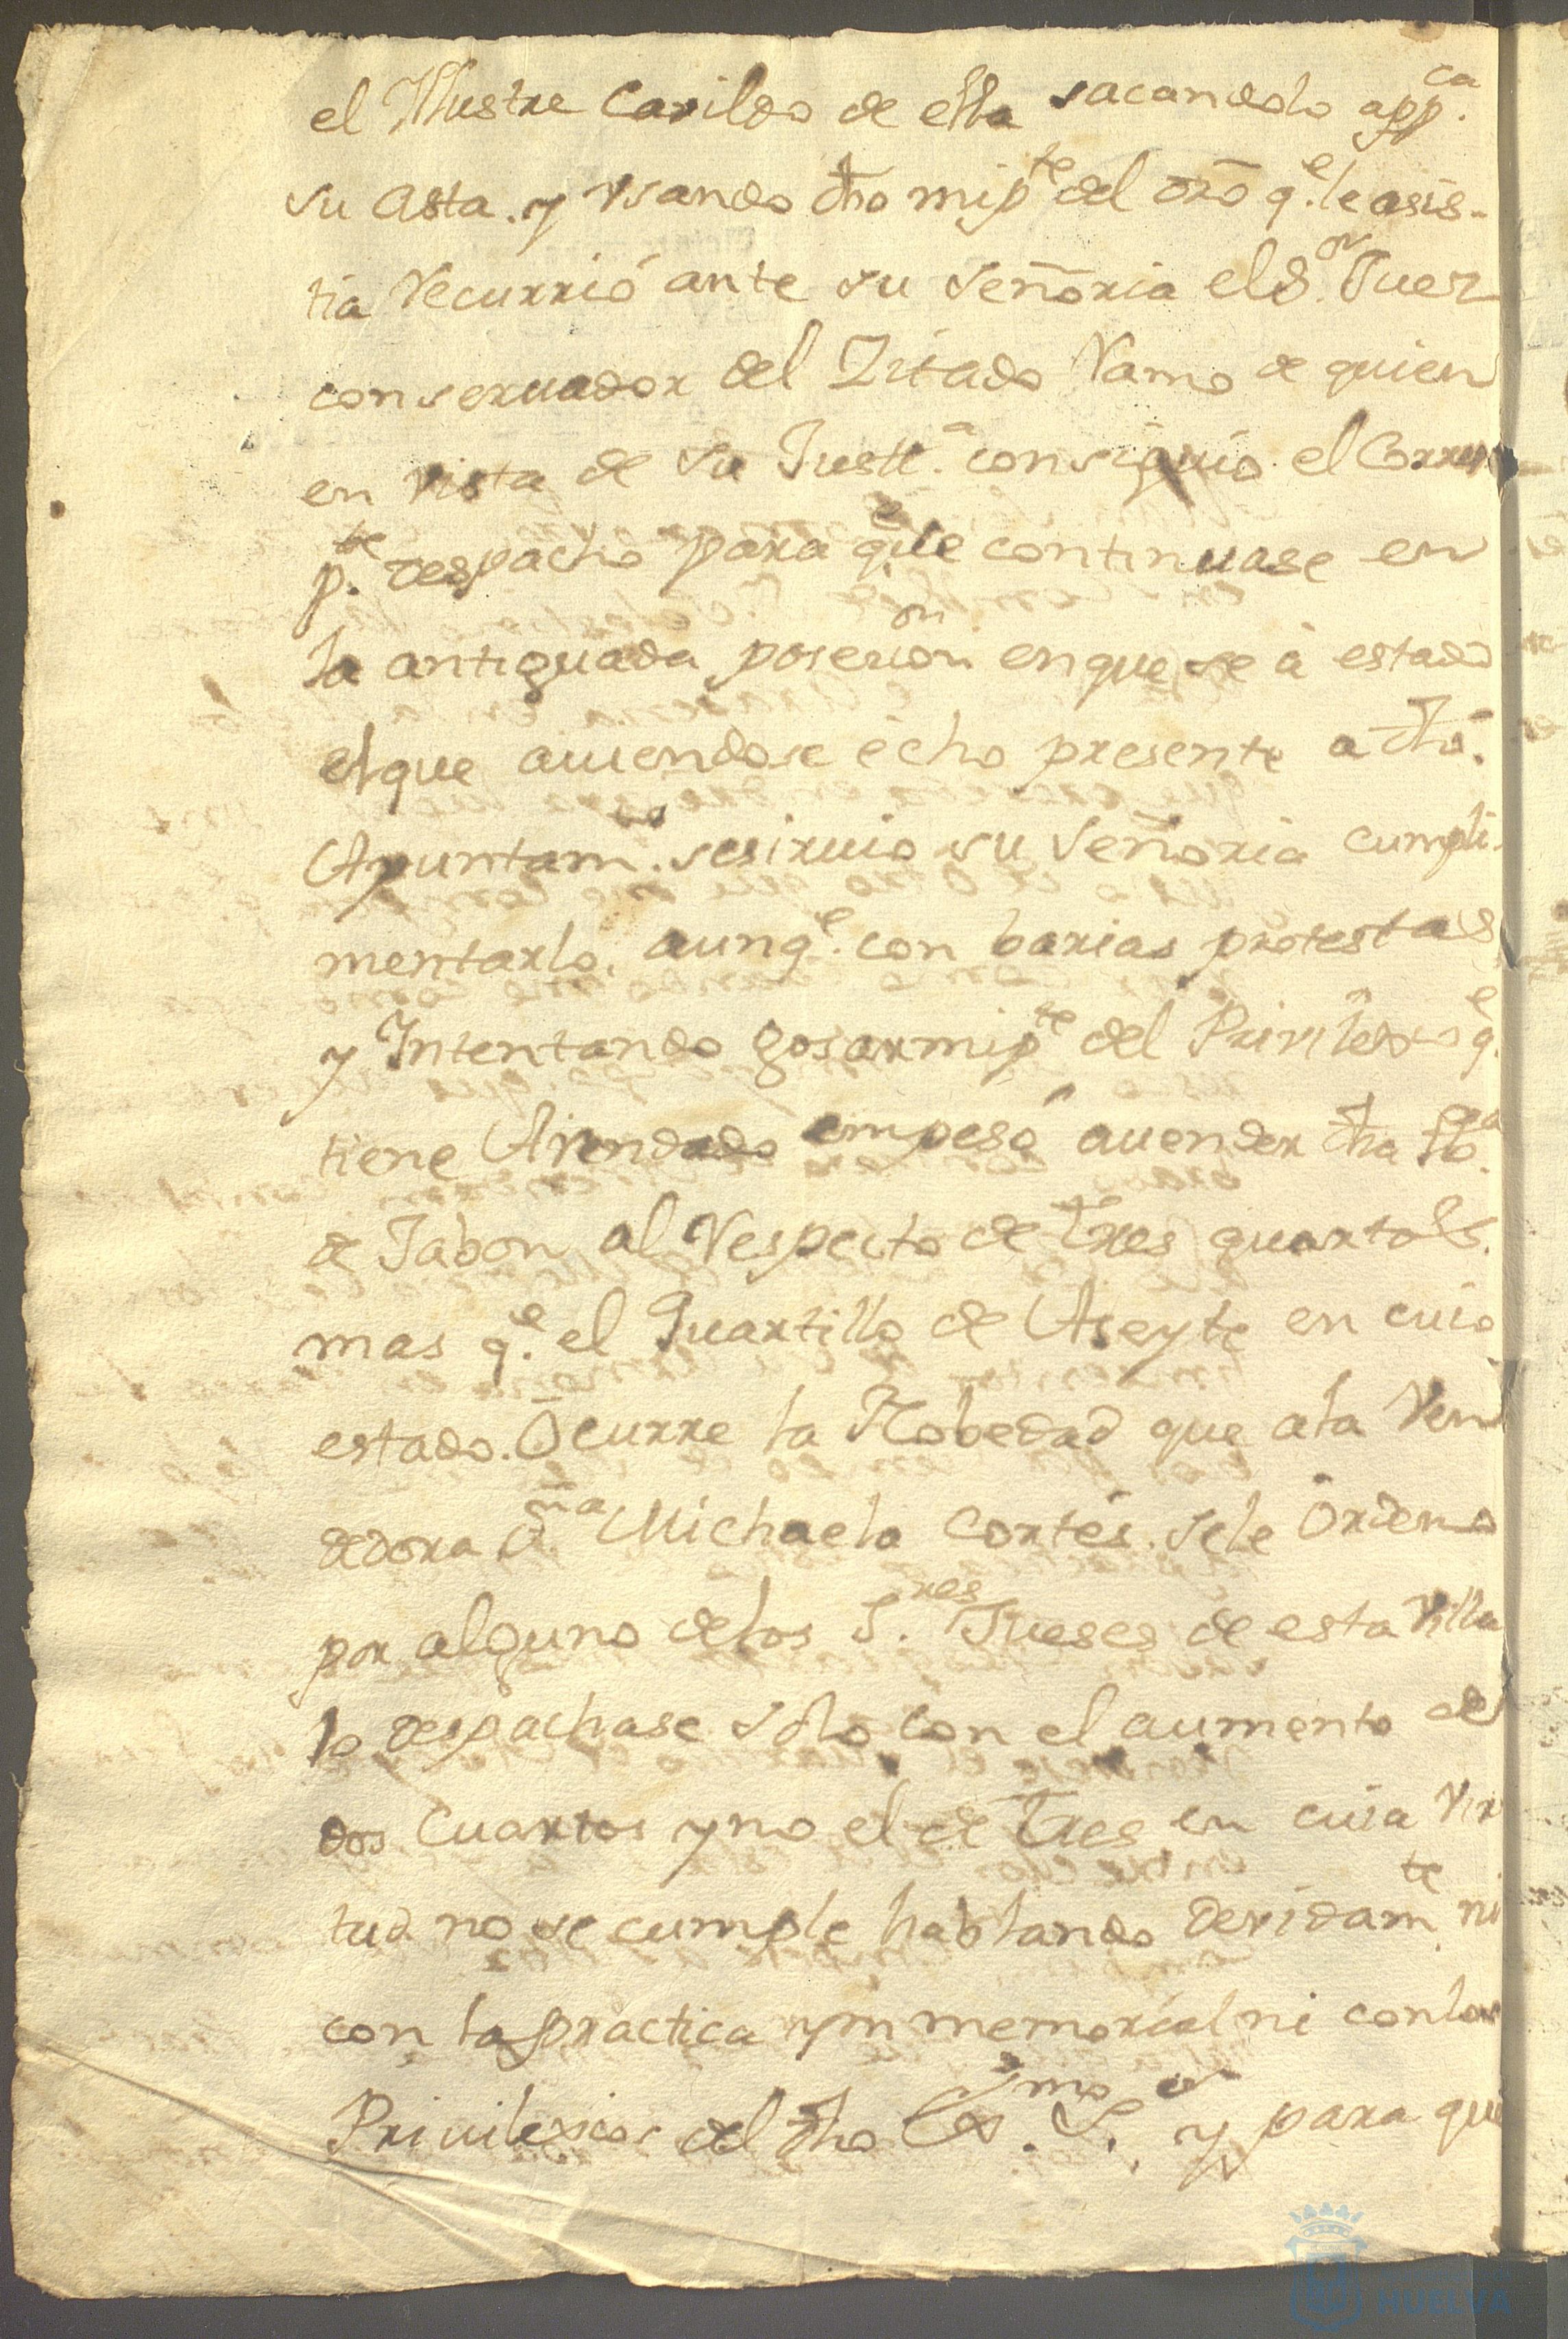 el Yllustre Cavildo de ella sacandolo a pp.ca
su Asta. y Vsando dho mi p.te del dro q.e le asis-
tia Recurrió ante su señoria el S.or Juez
conseruador del Zitado Ramo de quien
en vista de su Justt.a consiguio el Corres
p.te despacho para q.e le continuase en
la antiguada posecion en que se à estado
el que auiendose echo presente a dho.
Ayuntam.to se siruio su señoria cumpli-
mentarlo, aunq.e con barias protestas
y Intentando gosar mi p.te del Privilexio q.e
tiene Arrendado empesó a uender dha lb.a
de Jabon al Respecto de tres quartos
mas q.e el Quartillo de Aseyte en cuio
estado. Ocurre la Nobedad que a la Ven
dedora D.ña Michaela Cortés. se le Ordeno
por alguno de los S.res Jueses de esta Villa
lo despachase solo con el aumento de
dos cuartos y no el de tres en cuia Vir
tud no se cumple hablando devidam.te ni
con la practica ymmemorial ni con los
Privilexios del dho Ex.mo S.or y para que
HUELVA